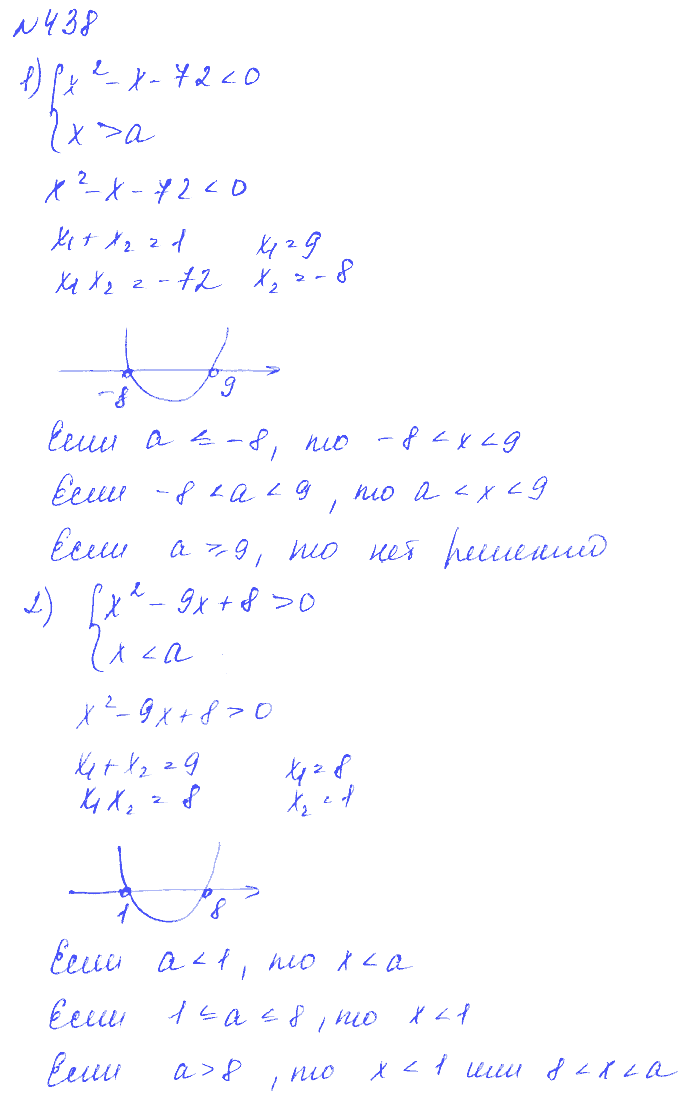 №438
1) { x² - x - 72 < 0
{ x > a
x² - x - 72 < 0
x₁ + x₂ = 1    x₁ = 9
x₁ x₂ = -72    x₂ = -8
-8    9
Если a ≤ -8, то -8 < x < 9
Если -8 < a < 9, то a < x < 9
Если a ≥ 9, то нет решений
2) { x² - 9x + 8 > 0
{ x < a
x² - 9x + 8 > 0
x₁ + x₂ = 9    x₁ = 8
x₁ x₂ = 8    x₂ = 1
1    8
Если a < 1, то x < a
Если 1 ≤ a ≤ 8, то x < 1
Если a > 8, то x < 1 или 8 < x < a